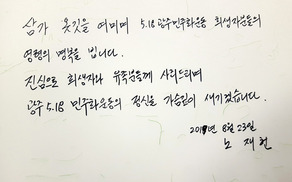 삼가 옷깃을 여미며 5.18 광주 민주화운동 희생자분들의
영령의 명복을 빕니다.
진심으로 희생자와 유족분들께 사죄드리며
광주 5.18 민주화운동의 정신을 가슴깊이 새기겠습니다.
2019년 8월 23일
노 재 헌